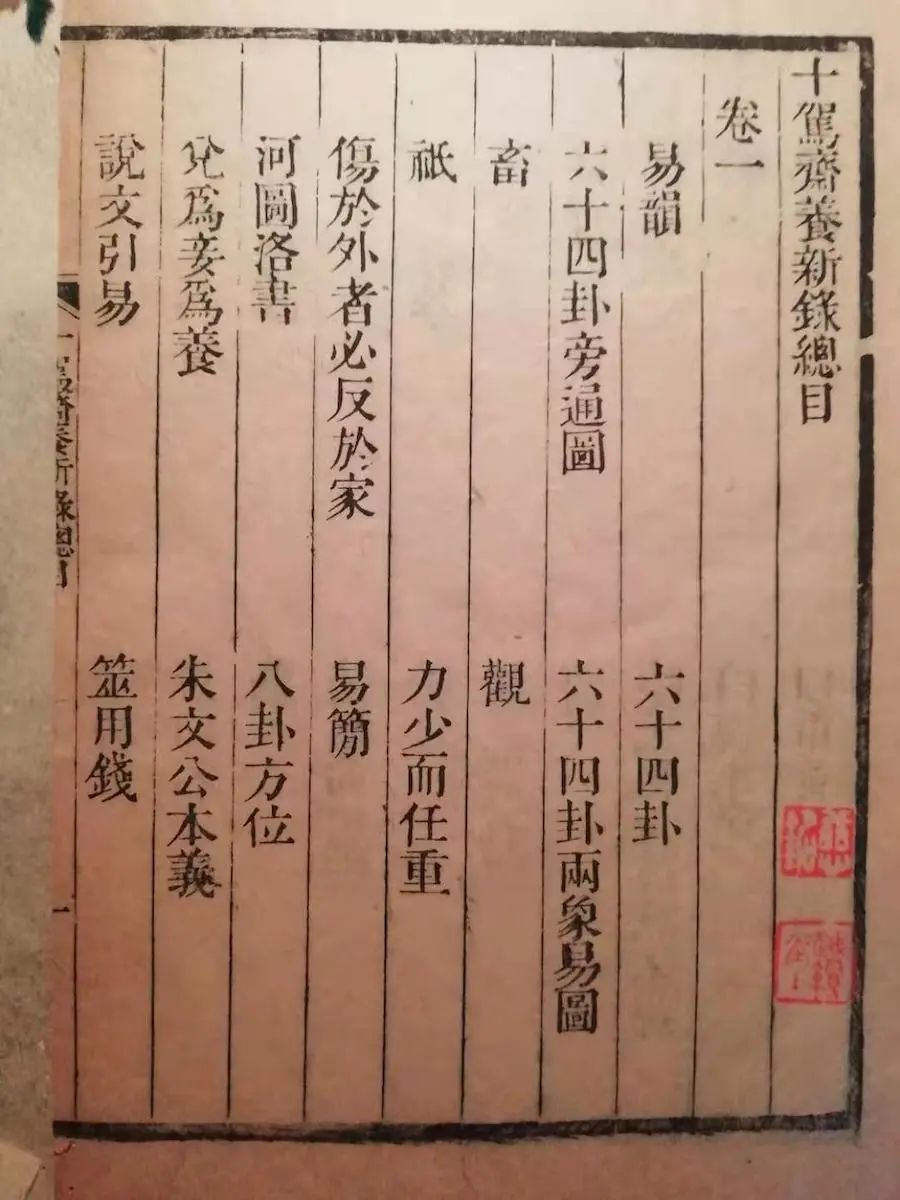 十駕齋養新錄總目
卷一
易韻 六十四卦
六十四卦旁通圖 六十四卦兩象易圖
畜 觀
祇 力少而任重
傷於外者必反於家 易簡
河圖洛書 八卦方位
兌爲妾爲養 朱文公本義
說文引易 筮用錢
十駕齋養新錄總目 一